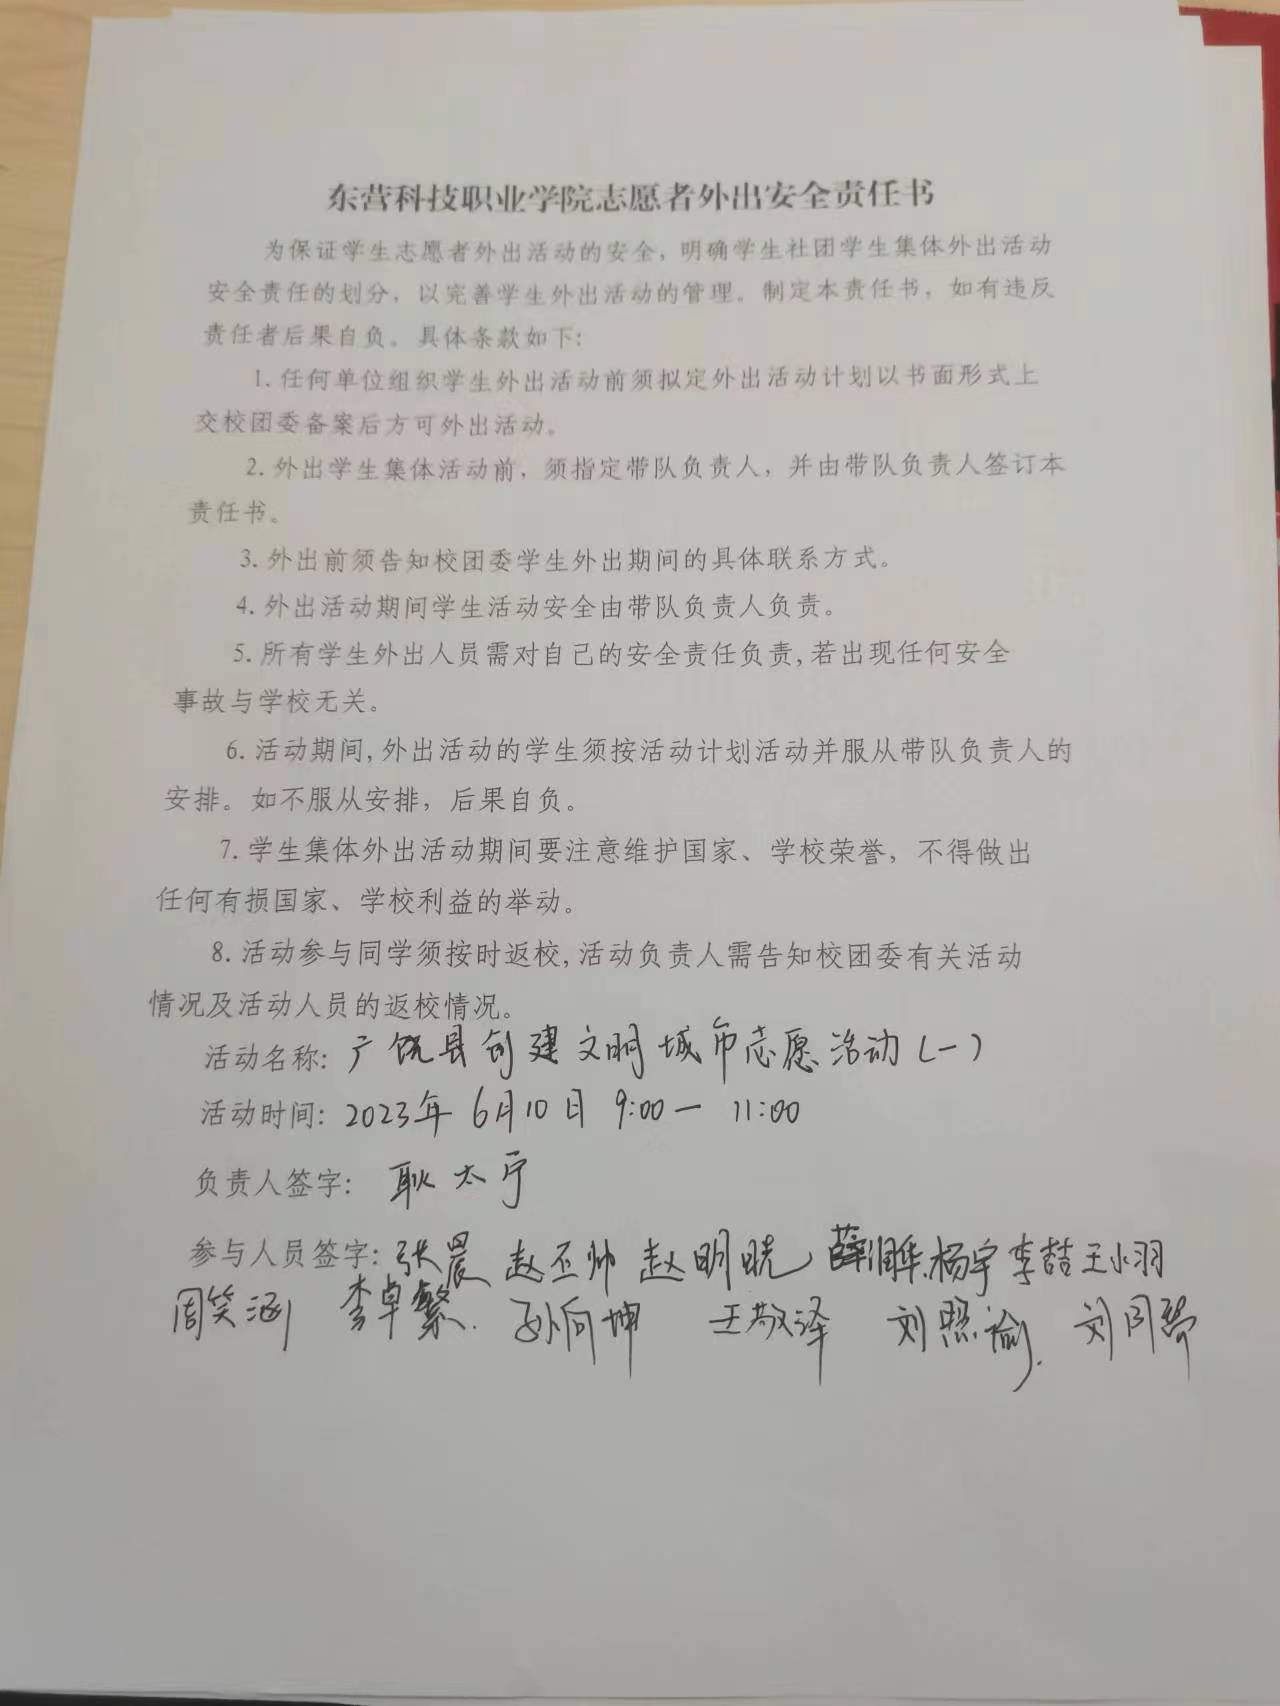 东营科技职业学院志愿者外出安全责任书
为保证学生志愿者外出活动的安全，明确学生社团学生集体外出活动
安全责任的划分，以完善学生外出活动的管理。制定本责任书，如有违反
责任者后果自负。具体条款如下：
1.任何单位组织学生外出活动前须拟定外出活动计划以书面形式上
交校团委备案后方可外出活动。
2.外出学生集体活动前，须指定带队负责人，并由带队负责人签订本
责任书。
3.外出前须告知校团委学生外出期间的具体联系方式。
4.外出活动期间学生活动安全由带队负责人负责。
5.所有学生外出人员需对自己的安全责任负责,若出现任何安全
事故与学校无关。
6.活动期间,外出活动的学生须按活动计划活动并服从带队负责人的
安排。如不服从安排，后果自负。
7.学生集体外出活动期间要注意维护国家、学校荣誉，不得做出
任何有损国家、学校利益的举动。
8.活动参与同学须按时返校,活动负责人需告知校团委有关活动
情况及活动人员的返校情况。
活动名称: 广饶县创建文明城市志愿活动(一)
活动时间: 2023年 6月10日 9:00— 11:00
负责人签字: 耿太宁
参与人员签字: 张晨 赵丕帅 赵明晓 薛 杨宇 李喆 王小羽
周笑涵 李卓繁. 孙向坤 王敬泽 刘照瑜. 刘同